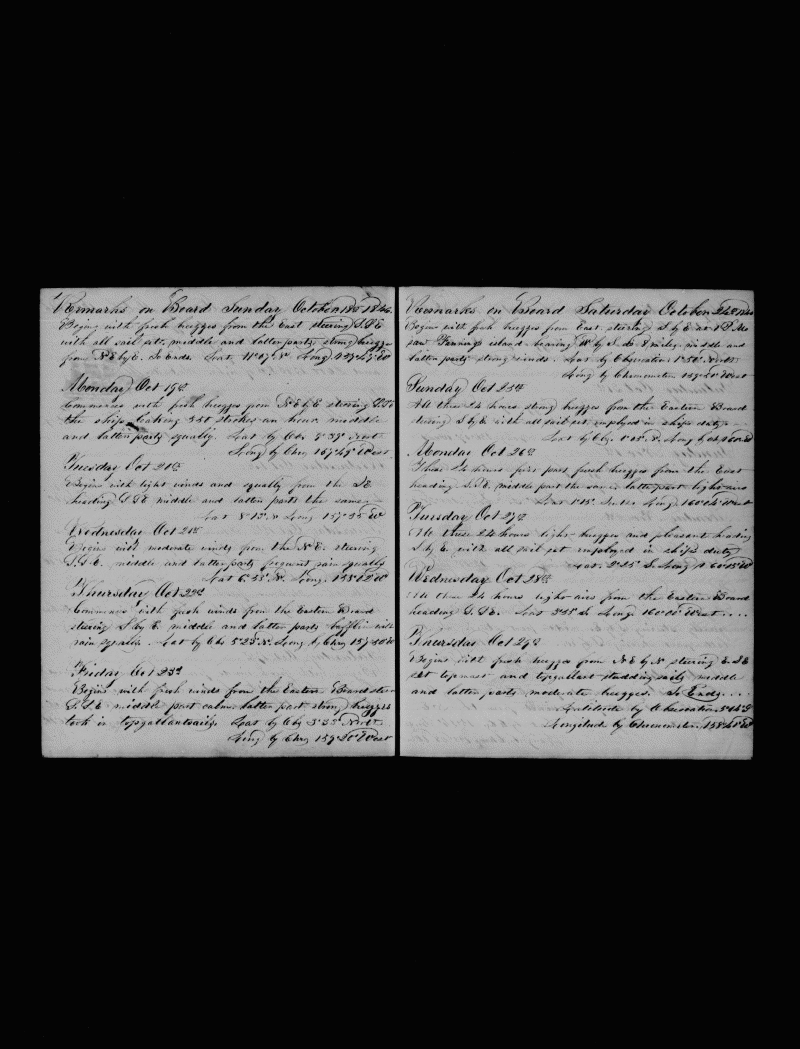 Remarks on Board Sunday October 18th 1846
Begins with fresh breezes from the East steering S.S.E
with all sail set, middle and latter parts strong breezes
from N.E by E. So Ends. Lat 11°07' N Long
Monday Oct 19th
Commences with fresh breezes from N.E by E steering S.S.E
the ship leaking 350 strokes an hour middle
and latter parts squally. Lat by Obs 9°37' North
Long by Chry 157°47' West
Tuesday Oct 20th
Begins with light winds and squally from the S.E
heading S.S.E middle and latter parts the same
Lat 8°12' N Long 157°35' W
Wednesday Oct 21st
Begins with moderate winds from the N.E. steering
S.S.E. middle and latter parts frequent rain squalls
Lat 6°53' N. Long. 158°12' W
Thursday Oct 22d
Commence with fresh winds from the Eastern Board
steering S by E middle and latter parts baffling with
rain squalls. Lat by Obs 5°23' N. Long by Chry 157°50' W
Friday Oct 23d
Begins with fresh winds from the Eastern Board steering
S.S.E middle part calm latter part strong breezes
took in topgallantsails. Lat by Obs 3°35' North
Long by Chry 159°20' West
Remarks on Board Saturday October 24th 1846
Begins with fresh breezes from East. steering S by E at 1 P.M.
saw Fannings island bearing W by S. miles. middle and
latter parts strong winds. Lat by Observation 1°50' North
Long by Chronometer 159°20' West
Sunday Oct 25th
All these 24 hours strong breezes from the Eastern Board
steering S by E with all sail set employed in ships duty
Lat by Obs. Long
Monday Oct 26th
These 24 hours first part fresh breezes from the East
heading S.S.E. middle part the same latter part light airs
Lat 1°15' South Long 160°04' West
Tuesday Oct 27th
All these 24 hours light breezes and pleasant heading
S by E with all sail set employed in ship's duty
Lat. 2°25' S. Long 160°15' W
Wednesday Oct 28th
All these 24 hours light airs from the Eastern Board
heading S.S.E. Lat 3°35' S. Long. 160°00' West
Thursday Oct 29th
Begins with fresh breezes from N.E by N steering E.S.E
set topmast and topgallant studding sails middle
and latter parts moderate breezes. So Ends
Latitude by Observation 5°14' S
Longitude by Chronometer 158°40' W